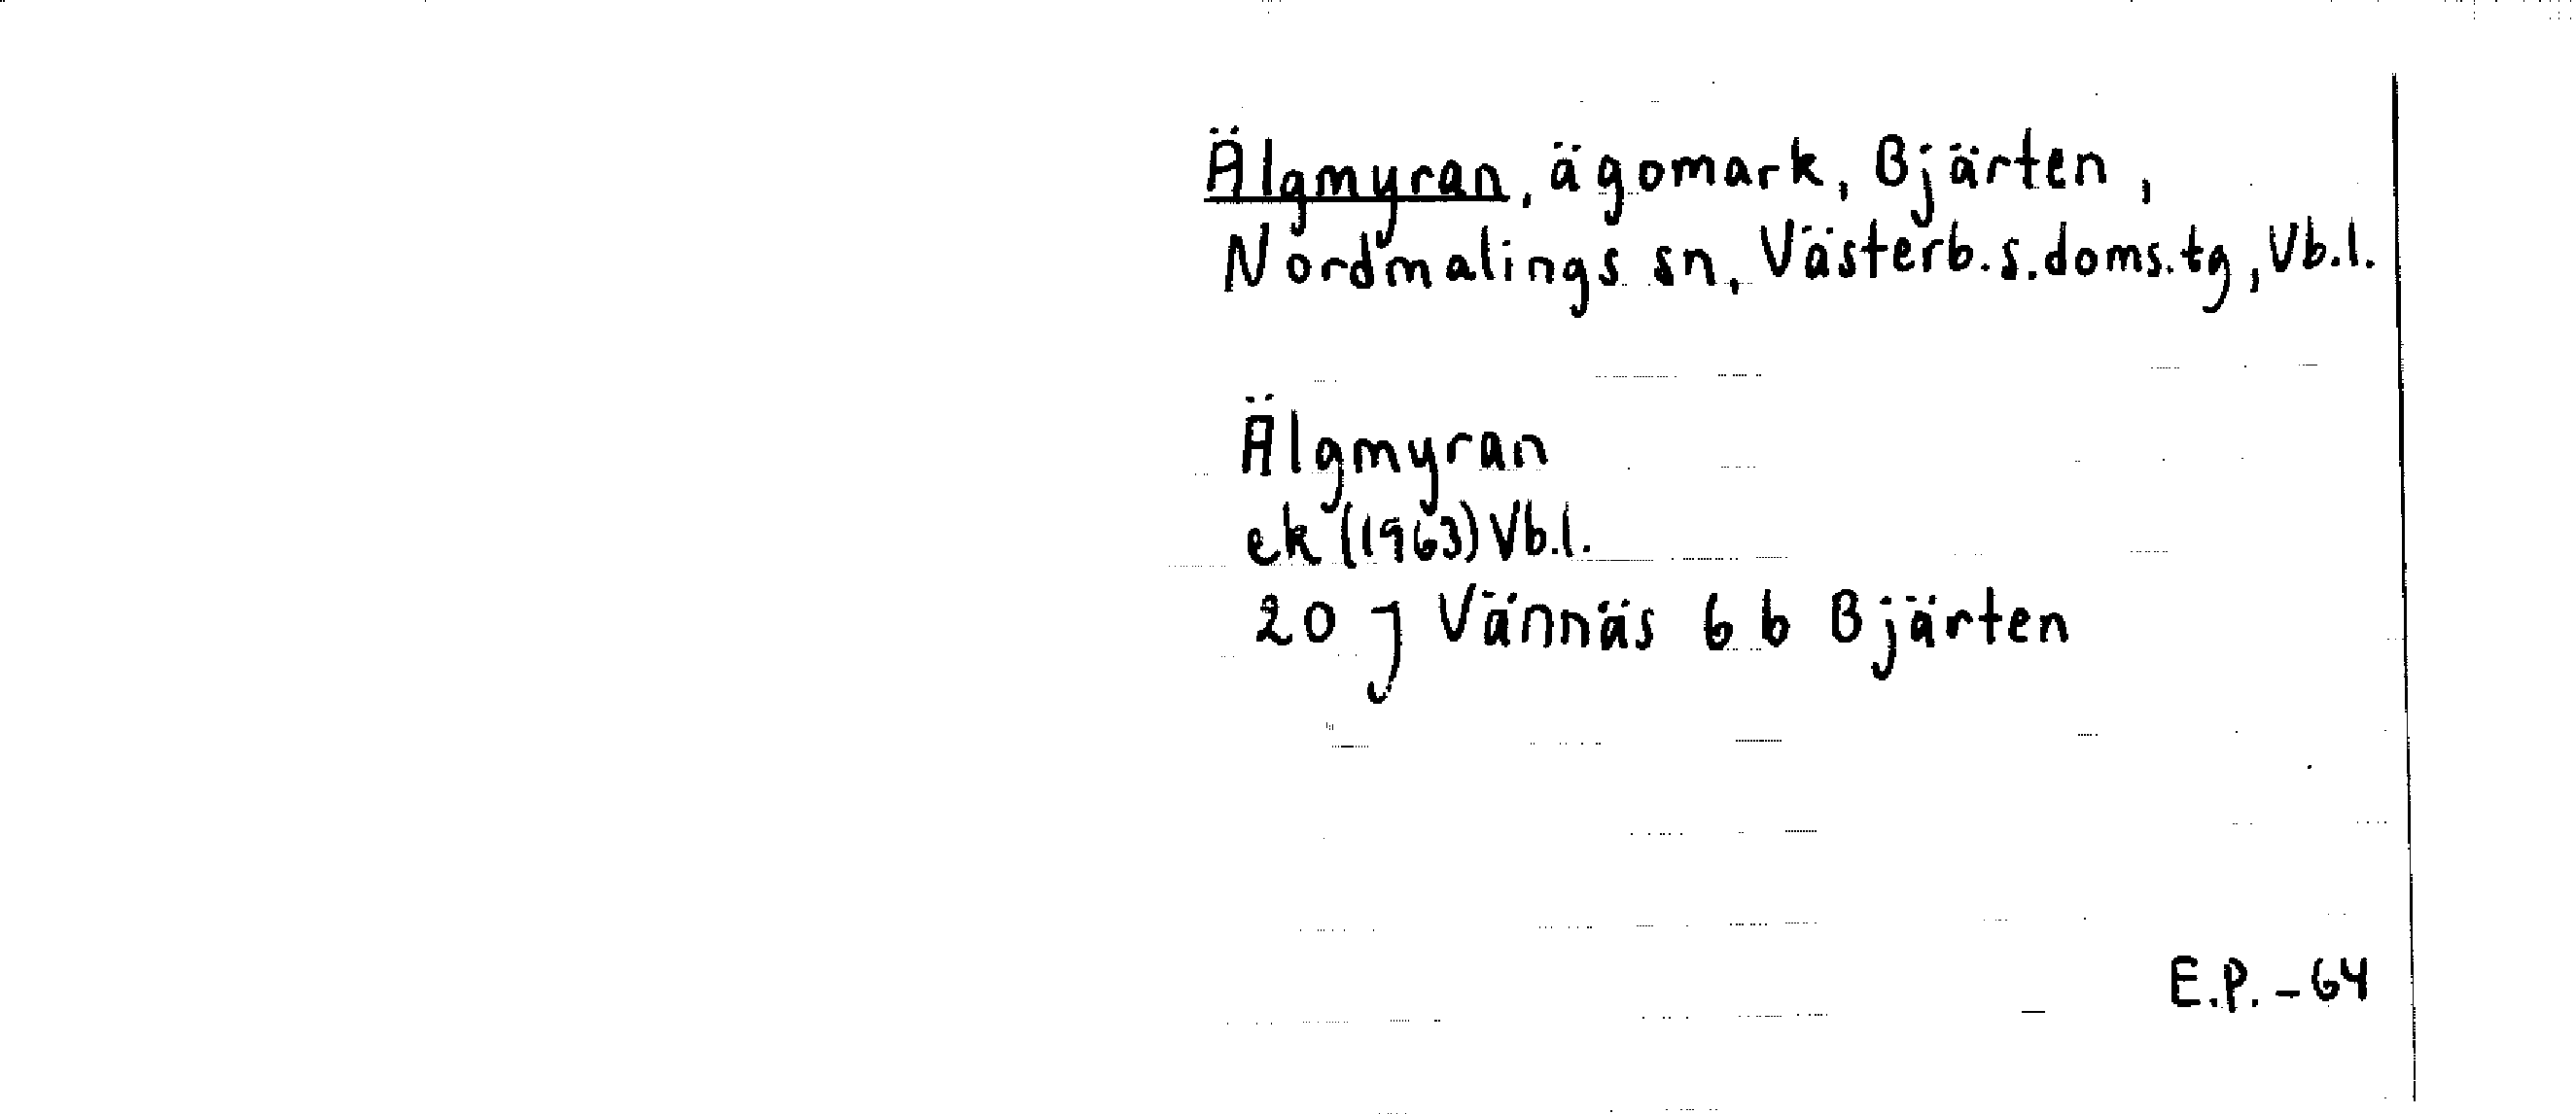 Älgmyran, ägomark, Bjärten,
Nordmalings sn, Västerb.s.doms.tg, Vb.l.
Älgmyran
ek (1963) Vb.l.
20 J Vännäs 6 b Bjärten
E.P. - 64